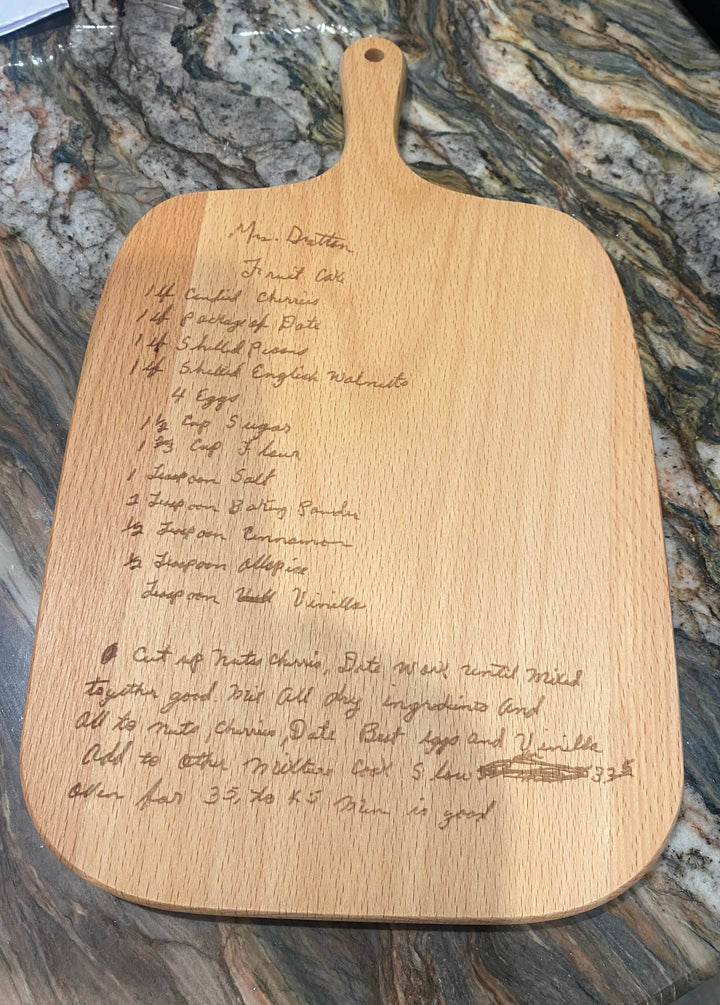 Mrs. Dratton
Fruit Cake
1 lb Candied Cherries
1 lb Package of Date
1 lb Shelled Picans
1 lb Shelled English Walnutts
4 Eggs
1 1/2 Cup Sugar
1 2/3 Cup Flour
1 Teaspoon Salt
2 Teaspoon Baking Powder
1/2 Teaspoon Cinnamon
1/2 Teaspoon Allspice
Teaspoon Vinilla
Cut up nuts cherris, Date work until mixed
together good. mix all dry ingredients and
all to nuts, cherries, Date Beat eggs and Vinilla
add to other mixture Cook Slow 335
oven for 35, to 45 min is good